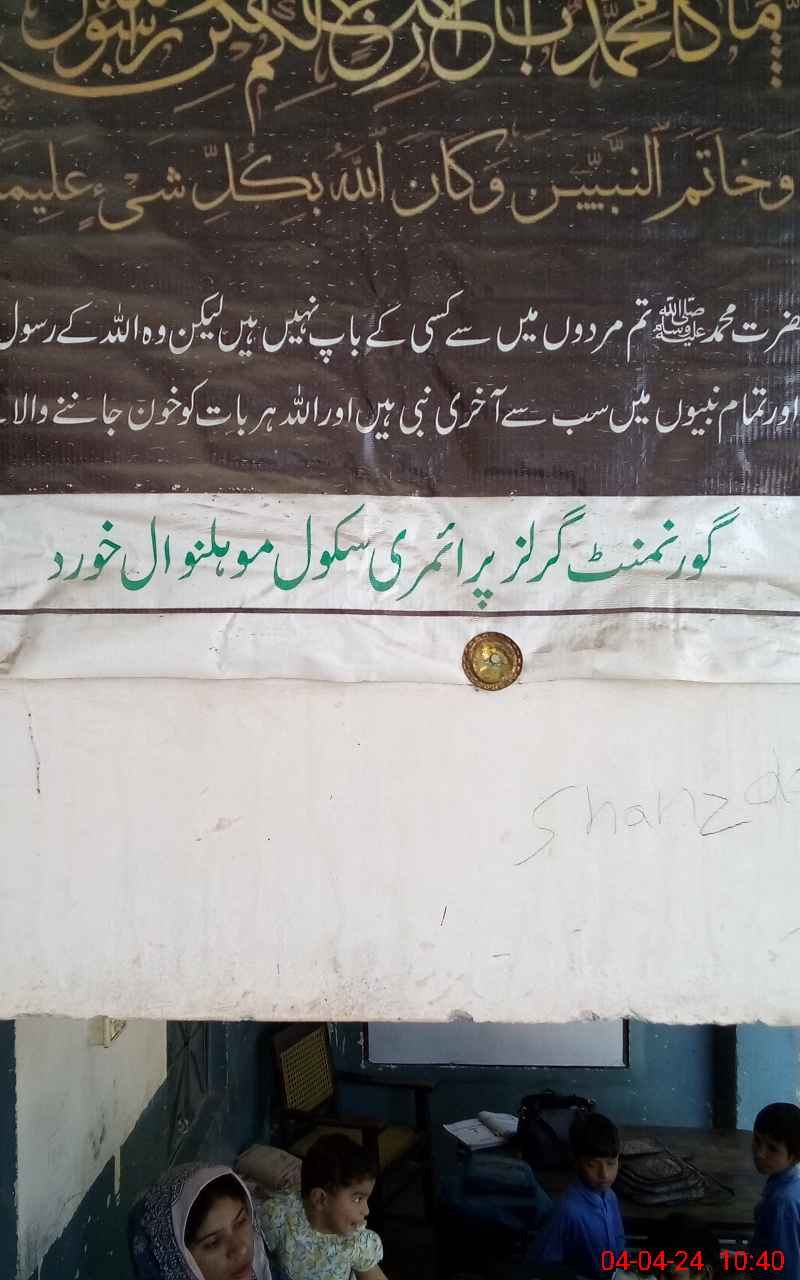 مَا كَانَ مُحَمَّدٌ أَبَا أَحَدٍ مِّن رِّجَالِكُمْ وَلَٰكِن رَّسُولَ
وَخَاتَمَ ٱلنَّبِيِّـۧنَ وَكَانَ ٱللَّهُ بِكُلِّ شَىْءٍ عَلِيمًا
حضرت محمدﷺ تم مردوں میں سے کسی کے باپ نہیں ہیں لیکن وہ اللہ کے رسول
اور تمام نبیوں میں سب سے آخری نبی ہیں اور اللہ ہر بات کو خون جاننے والا
گورنمنٹ گرلز پرائمری سکول موہلنوال خورد
04-04-24 10:40